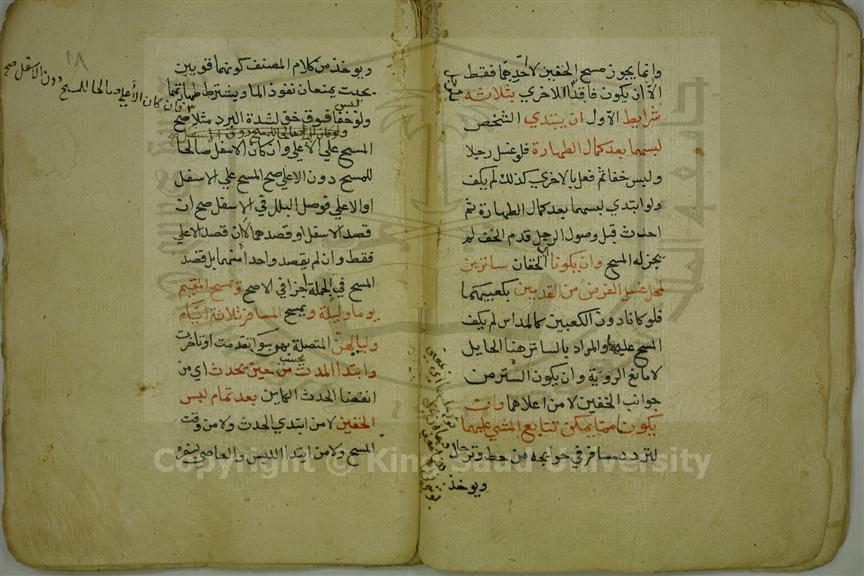 وانما يجوز مسح الخفين لا احدهما فقط
الا ان يكون فاقد الاخري بثلاثة
شرايط الاول ان يبتدي الشخص
لبسهما بعد كمال الطهارة فلو غسل رجلا
ولبس خفها ثم فعل بالاخري كذلك لم يكف
ولو ابتدي لبسهما بعد كمال الطهارة ثم
احدث قبل وصول الرجل قدم الخف لم
يجز له المسح وان يكونا الخفان ساترين
لمحل غسل الفرض من القدمين بكعبيهما
فلو كانا دون الكعبين كالمداس لم يكف
المسح عليهما والمراد بالساتر هنا الحايل
لا مانع الروية وان يكون الستر من
جوانب الخفين لا من اعلاهما وان
يكونا مما يمكن تتابع المشي عليهما
لتردد مسافر في حوايجه من حط وترحال
ويوخذ
١٨
ويوخذ من كلام المصنف كونهما قويين
بحيث يمنعان نفوذ الما ويشترط طهارتهما
ولو لبس خفا فوق خف لشدة البرد مثلا صح
فان كان الأعلي صالحا للمسح دون الاسفل صح
المسح علي الاعلي وان كان الاسفل صالحا
للمسح دون الاعلي صح المسح علي الاسفل
او الاعلي فوصل البلل في الاسفل صح ان
قصد الاسفل او قصدهما لا ان قصد الاعلي
فقط وان لم يقصد واحدا منهما بل قصد
المسح في الجملة اجزا في الاصح ويمسح المقيم
يوما وليلة ويمسح المسافر ثلاثة ايام
ولياليهن المتصلة بهن سوا تقدمت او تأخرت
وابتدا المدة تحسب من حين يحدث اي من
انقضا الحدث الكاين بعد تمام لبس
الخفين لا من ابتدي الحدث ولا من وقت
المسح ولا من ابتدا اللبس والعاصي بسفره
Copyright © King Saud University